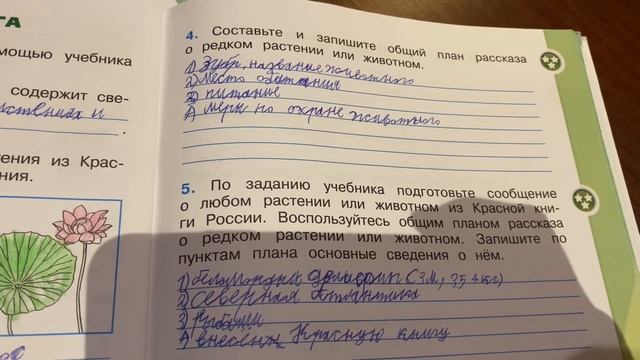 ТА
мощью учебника
содержит све-
.
тения из Крас-
ния.
4. Составьте и запишите общий план рассказа
о редком растении или животном.
1) Зубр, название животного
2) Место обитания
3) питание
4) меры по охране животного
5. По заданию учебника подготовьте сообщение
о любом растении или животном из Красной кни-
ги России. Воспользуйтесь общим планом рассказа
о редком растении или животном. Запишите по
пунктам плана основные сведения о нём.
1) (3м, 35 кг)
2) Северная Атлантика
3) рыбами
4) внесен Красную книгу